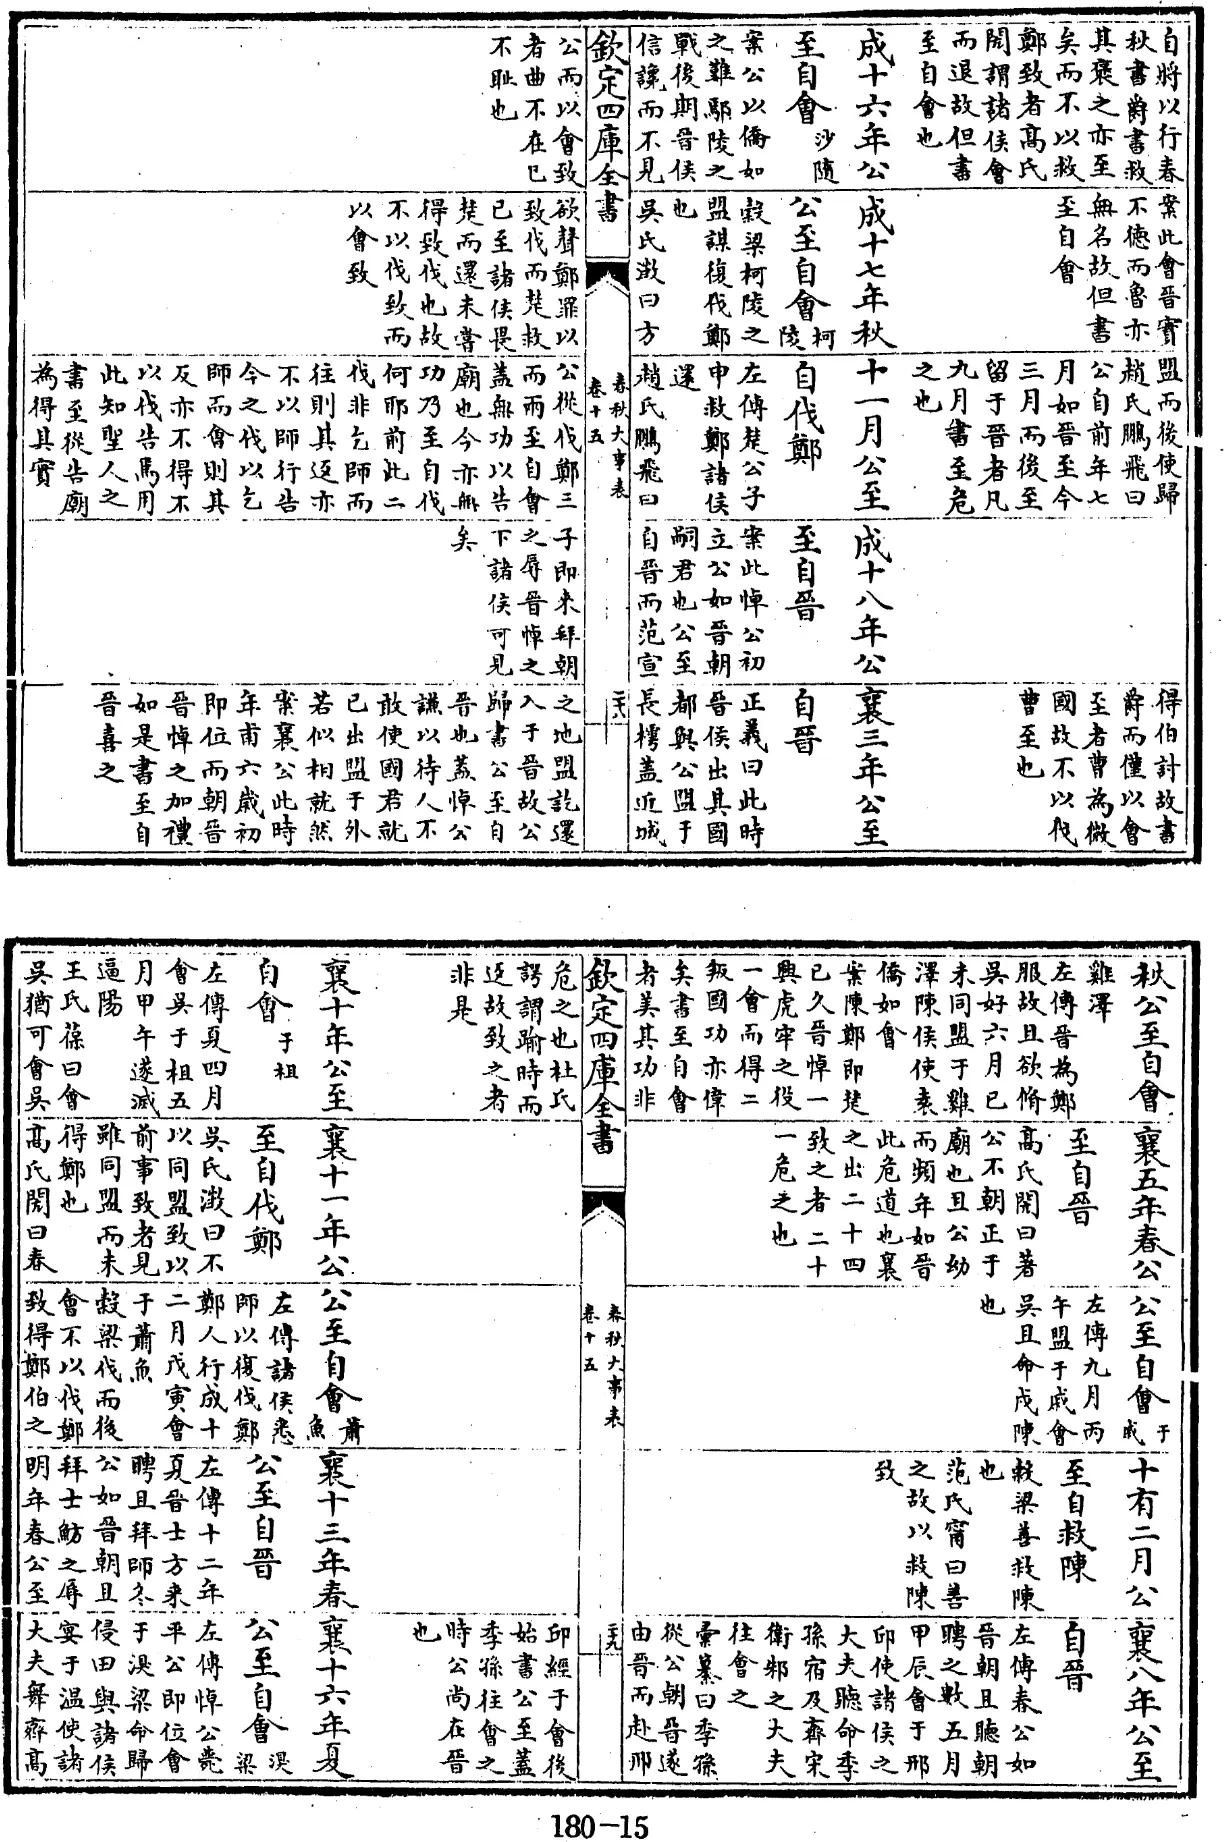 自將以行春
秋書爵書救
其褒之亦至
矣而不以救
鄭致者高氏
閌謂諸侯會
而退故但書
至自會也
案此會晉實
不德而魯亦
無名故但書
至自會
盟而後使歸
趙氏鵬飛曰
公自前年七
月如晉至今
三月而後至
留于晉者凡
九月書至危
之也
得伯討故書
爵而僅以會
至者曹為微
國故不以伐
曹至也
成十六年公
至自會 沙隨
案公以僑如
之難鄢陵之
戰後期晉侯
信讒而不見
成十七年秋
公至自會 柯陵
穀梁柯陵之
盟謀復伐鄭
也
吳氏澂曰方
十一月公至
自伐鄭
左傳楚公子
申救鄭諸侯
還
趙氏鵬飛曰
成十八年公
至自晉
案此悼公初
立公如晉朝
嗣君也公至
自晉而范宣
襄三年公至
自晉
正義曰此時
晉侯出其國
都與公盟于
長樗蓋近城
欽定四庫全書
春秋大事表
卷十五
二十八
公而以會致
者曲不在已
不耻也
欲聲鄭罪以
致伐而楚救
已至諸侯畏
楚而還未嘗
得致伐也故
不以伐致而
以會致
公從伐鄭三
而兩至自會
蓋無功以告
廟也今亦無
功乃至自伐
何耶前此二
伐非乞師而
往則其返亦
不以師行告
今之伐以乞
師而會則其
反亦不得不
以伐告焉用
此知聖人之
書至從告廟
為得其實
子即来拜朝
之辱晉悼之
下諸侯可見
矣
之地盟訖還
入于晉故公
歸書公至自
晉也蓋悼公
謙以待人不
敢使國君就
已出盟于外
若似相就然
案襄公此時
年甫六歲初
即位而朝晉
晉悼之加禮
如是書至自
晉喜之
秋公至自會
雞澤
左傳晉為鄭
服故且欲脩
吳好六月已
未同盟于雞
澤陳侯使袁
僑如會
案陳鄭即楚
已久晉悼一
興虎牢之役
一會而得二
叛國功亦偉
矣書至自會
者美其功非
襄五年春公
至自晉
高氏閌曰著
公不朝正于
廟也且公幼
而頻年如晉
此危道也襄
之出二十四
致之者二十
一危之也
公至自會 于戚
左傳九月丙
午盟于戚會
吳且命戍陳
也
十有二月公
至自救陳
穀梁善救陳
也
范氏甯曰善
之故以救陳
致
襄八年公至
自晉
左傳春公如
晉朝且聽朝
聘之數五月
甲辰會于邢
邱使諸侯之
大夫聽命季
孫宿及齊宋
衛邾之大夫
往會之
彙纂曰季孫
從公朝晉遂
由晉而赴邢
欽定四庫全書
春秋大事表
卷十五
二十九
危之也杜氏
諤謂踰時而
返故致之者
非是
邱經于會後
始書公至蓋
季孫往會之
時公尚在晉
也
襄十年公至
自會 于柤
左傳夏四月
會吳于柤五
月甲午遂滅
逼陽
王氏葆曰會
吳猶可會吳
襄十一年公
至自伐鄭
吳氏澂曰不
以同盟致以
前事致者見
雖同盟而未
得鄭也
高氏閌曰春
公至自會 蕭魚
左傳諸侯悉
師以復伐鄭
鄭人行成十
二月戊寅會
于蕭魚
穀梁伐而後
會不以伐鄭
致得鄭伯之
襄十三年春
公至自晉
左傳十二年
夏晉士方来
聘且拜師冬
公如晉朝且
拜士魴之辱
明年春公至
襄十六年夏
公至自會 溴梁
左傳悼公薨
平公即位會
于溴梁命歸
侵田與諸侯
宴于温使諸
大夫舞齊高
180-15